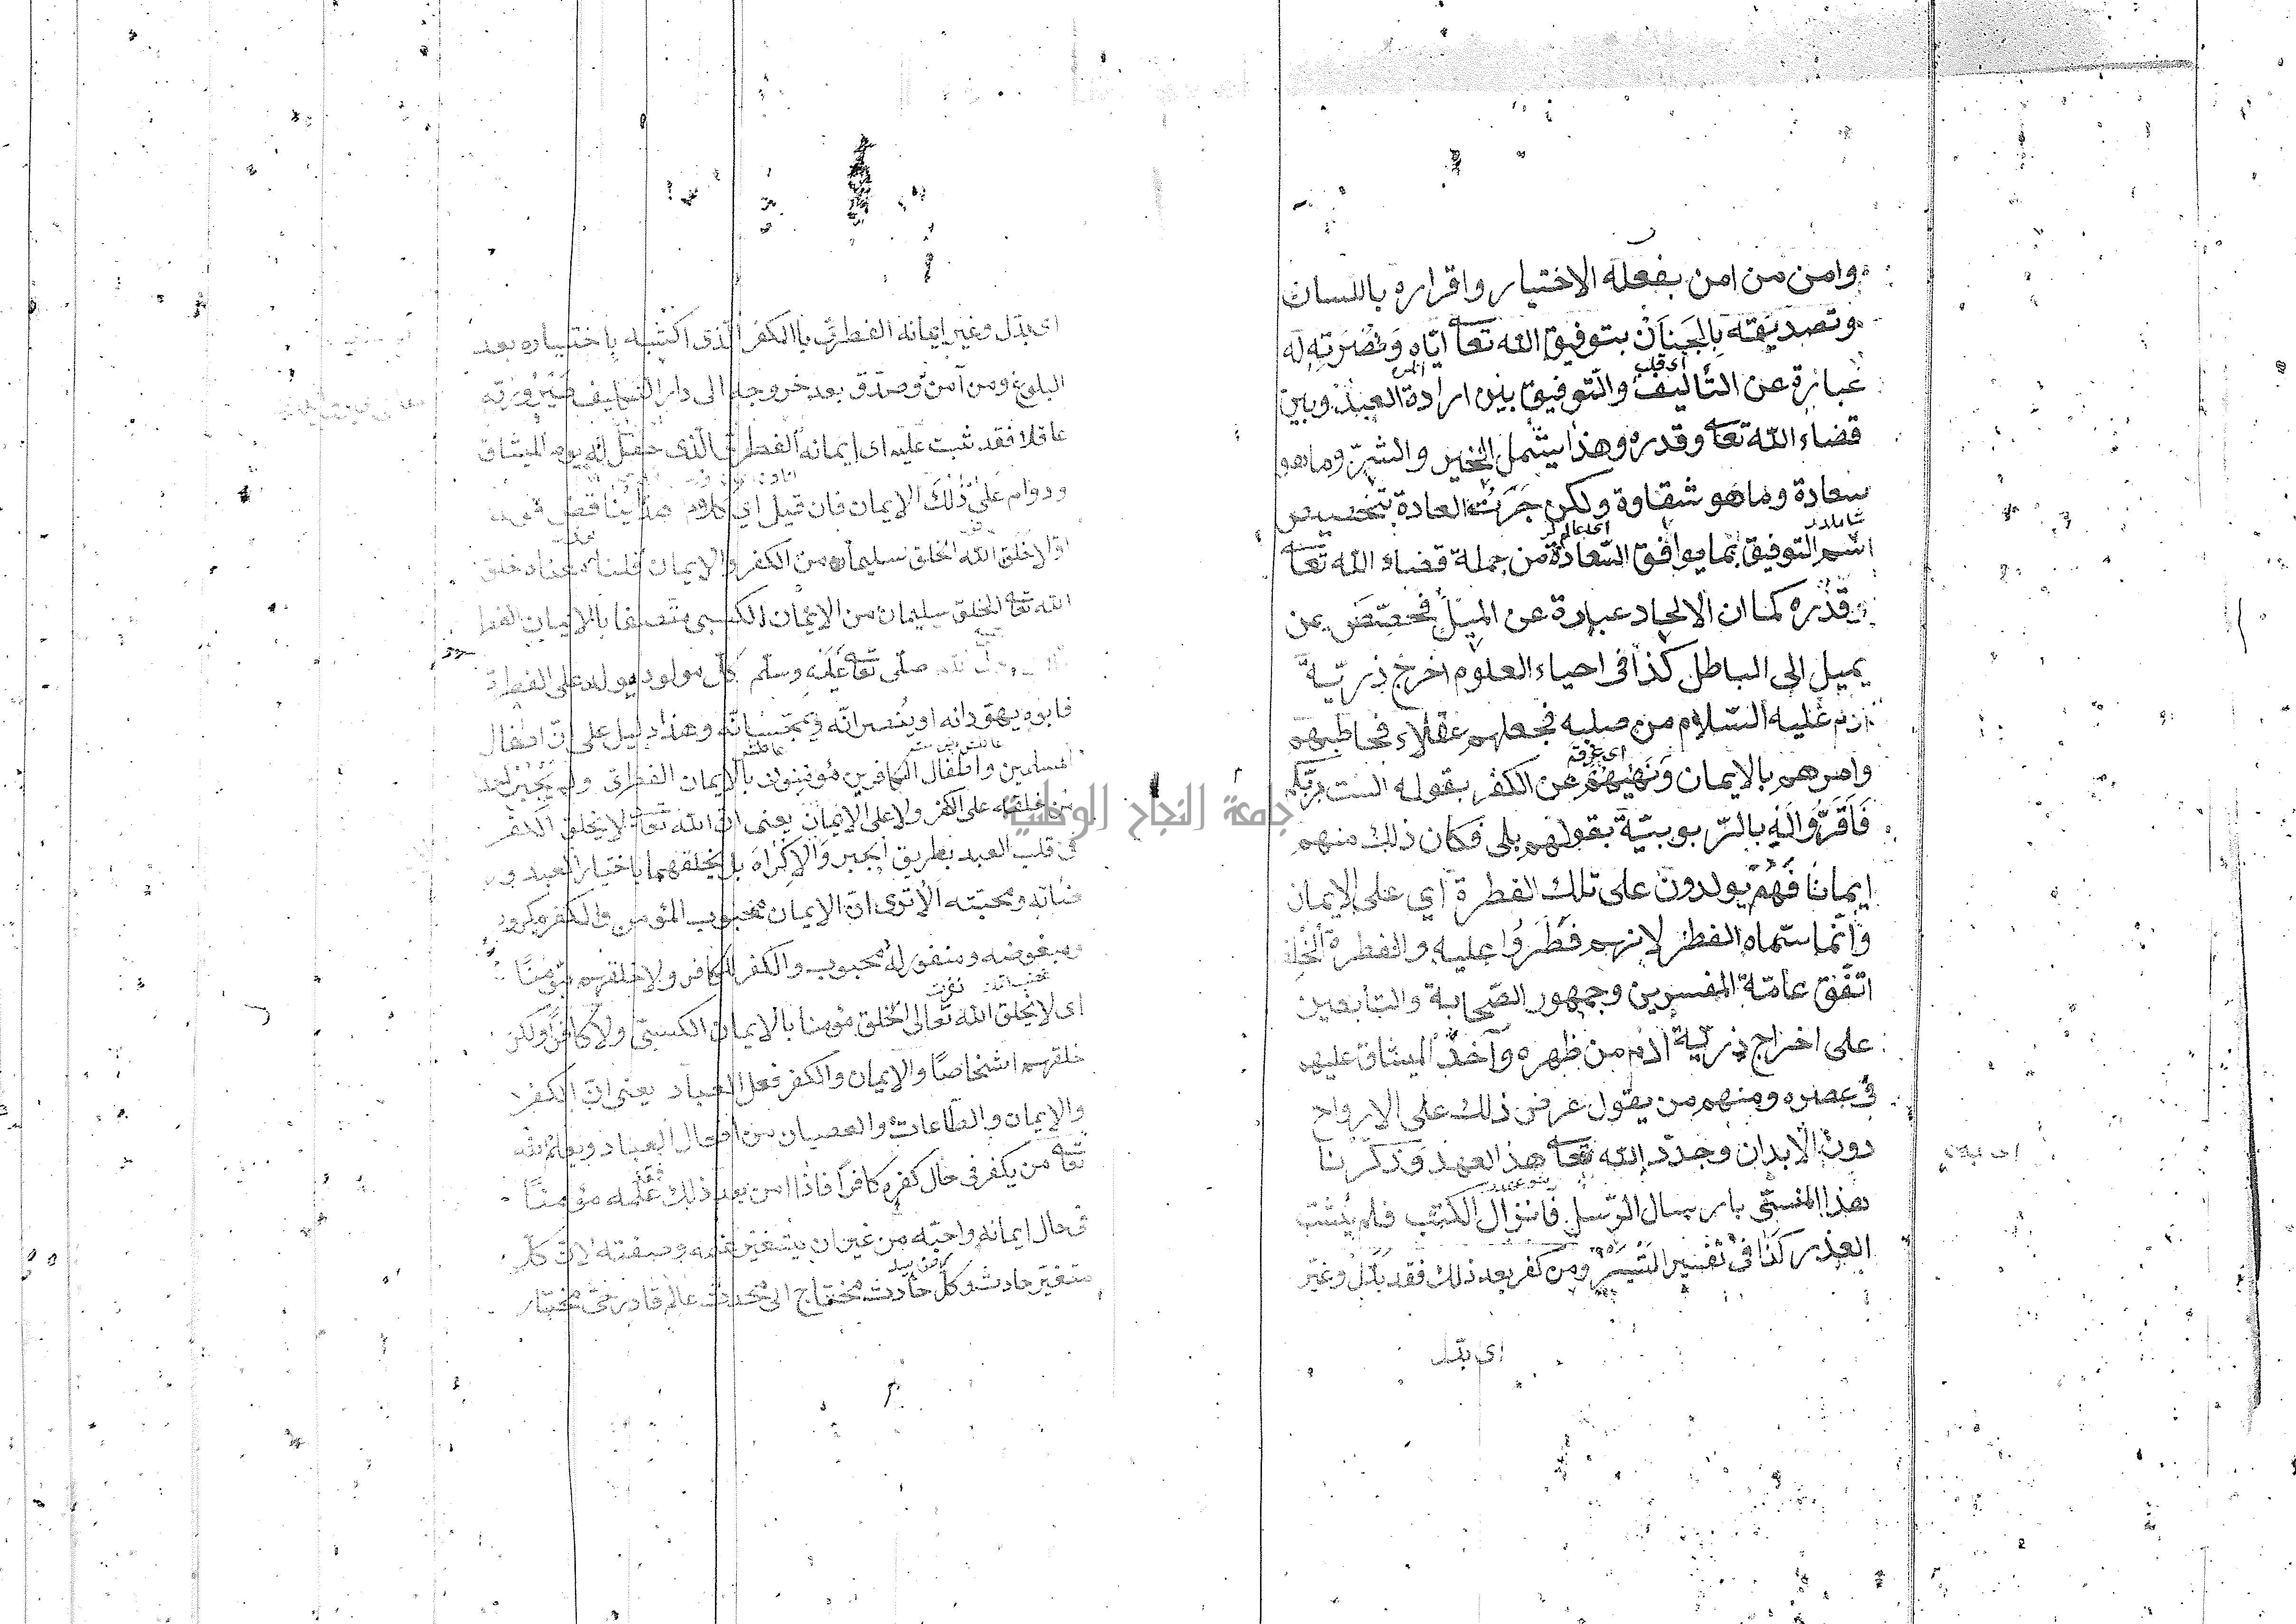 وامن من امن بفعله الاختيار واقراره باللسان
وتصديقه بالجنان بتوفيق الله تعا اياه ونصرته له
اى قلب
عبارة عن التأليف والتوفيق بين ارادة العبد وبين
قضاء الله تعا وقدره وهذا يشمل الخير والشر وما هو
سعادة وما هو شقاوة ولكن جرت العادة بتخصيص
اسم التوفيق بما يوافق السعادة من جملة قضاء الله تعا
وقدره كما ان الالحاد عبارة عن الميل فخصص بمن
يميل الى الباطل كذا فى احياء العلوم اخرج ذرية
ادم عليه السلام من صلبه فجعلهم عقلاء فخاطبهم
وامرهم بالايمان ونهيهم عن الكفر بقوله الست بربكم
فاقروا له بالربوبية بقولهم بلى فكان ذلك منهم
ايمانا فهم يولدون على تلك الفطرة اي على الايمان
وانما سماه الفطر لانهم فطروا عليه والفطرة الخلق
اتفق عامة المفسرين وجمهور الصحابة والتابعين
على اخراج ذرية ادم من ظهره وأخذ الميثاق عليهم
فى عصره ومنهم من يقول عرض ذلك على الارواح
دون الابدان وجدد الله تعا هذا العهد وذكرنا
هذا المنسى بارسال الرسل فانزال الكتب فلم يثبت
العذر كذا فى تفسير التيسير ومن كفر بعد ذلك فقد بدل وغير
اى بدل
اى بدل وغير ايمانه الفطرى باالكفر الذى اكتسبه باختياره بعد
البلوغ ومن آمن وصدق بعد خروجه الى دار التكليف
عاقلا فقد ثبت عليه اى ايمانه الفطرى الذى حصل له يوم الميثاق
ودوام على ذلك الايمان فان قيل اي كلام هذا يناقض قوله
اولا خلق الله الخلق سليما من الكفر والايمان قلنا معناه خلق
الله تعا الخلق سليمان من الايمان الكسبى متصفا بالايمان
صلى تعا عليه وسلم كل مولود يولد على الفطرة
فابوه يهودانه او ينصرانه ويمجسانه وهذا دليل على ان اطفال
المسلمين واطفال الكافرين مؤمنون بالايمان الفطرى ولم يجبر احد
من خلقه على الكفر ولا على الايمان يعنى ان الله تعا لا يخلق الكفر
فى قلب العبد بطريق الجبر والاكراه بل يخلقهما باختيار العبد و
ومحبته الا ترى ان الايمان محبوب المؤمن والكفر مكروه
ومبغوضه ومنفور له محبوب والكفر للكافر ولا خلقهم مؤمنا
اى لا يخلق الله تعالى الخلق مؤمنا بالايمان الكسبى ولا كافرا ولكن
خلقهم اشخاصا والايمان والكفر فعل العباد يعنى ان الكفر
والايمان والطاعات والعصيان من افعال العباد ويعلم الله
تعا من يكفر فى حال كفره كافرا فاذا امن بعد ذلك علمه مؤمنا
فى حال ايمانه واحبه من غير ان يتغير علمه وصفته لان كل
متغير حادث وكل حادث محتاج الى محدث عالم قادر حى مختار
جامعة النجاح الوطنية